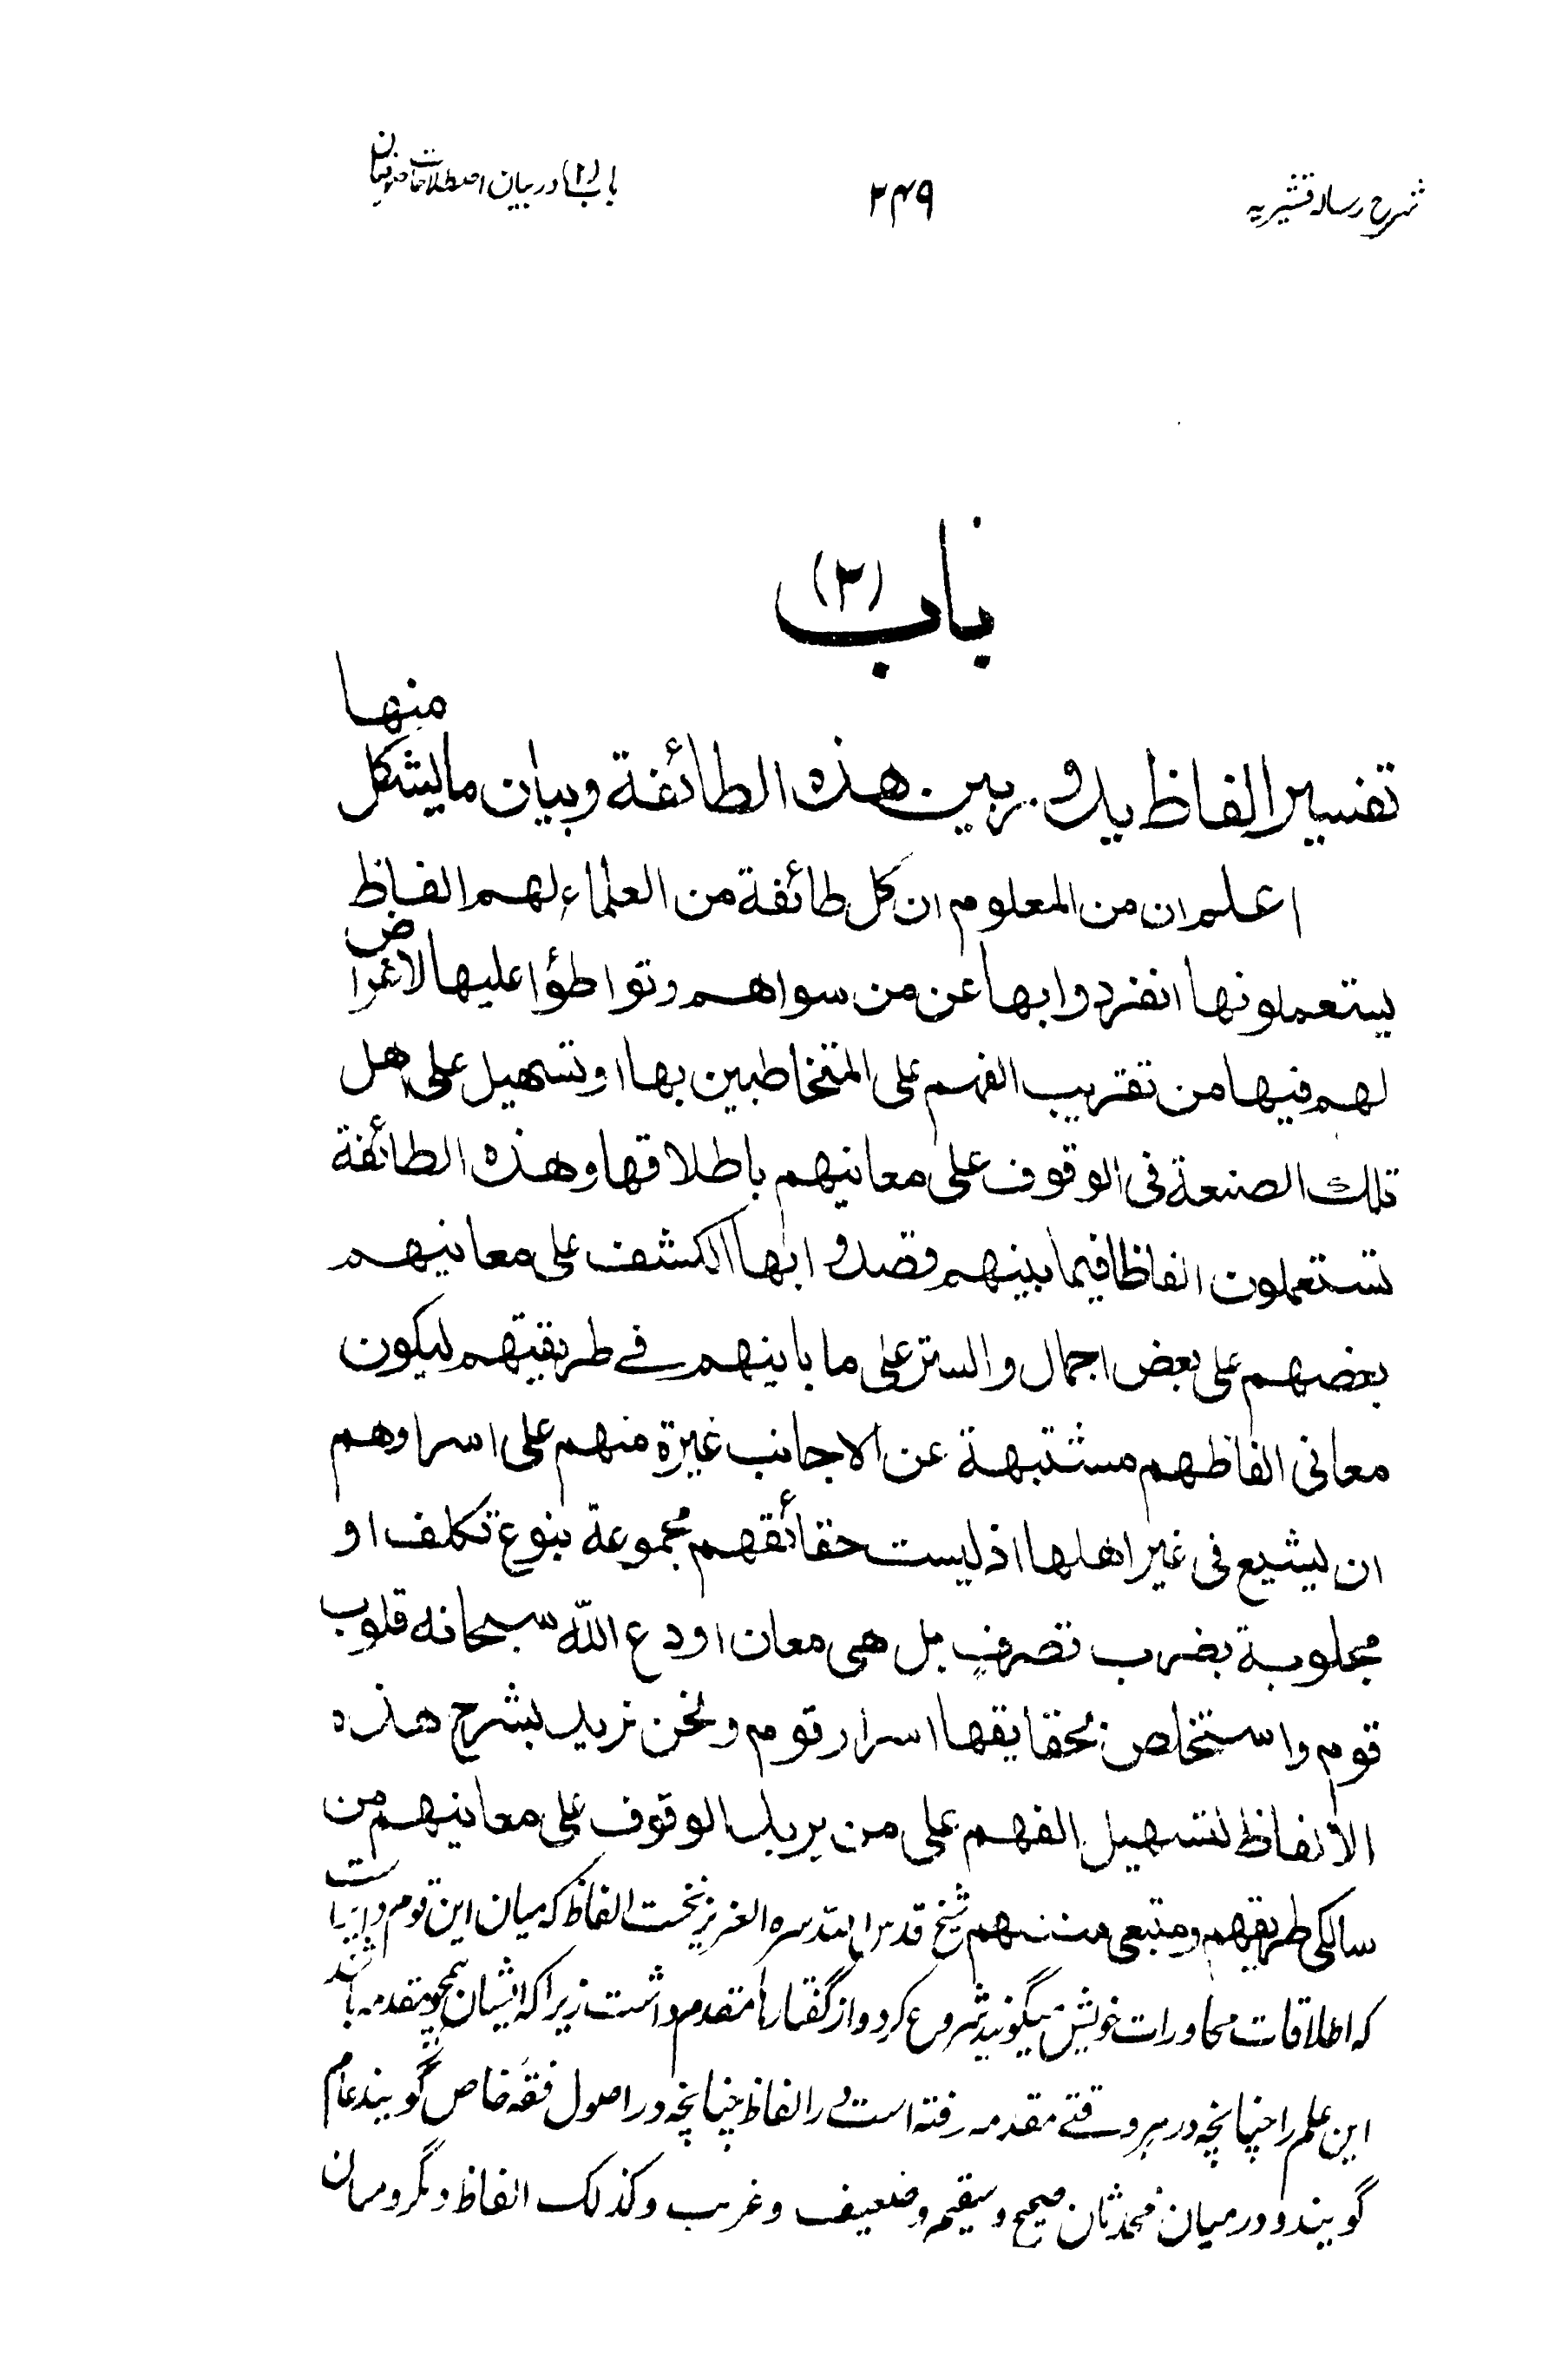 شرح رساله قشیریه ۲۴۹ باب (۲) در بیان اصطلاحات صوفیان
باب (۲)
تفسیر الفاظ یدور بین هذه الطائفة وبیان ما یشکل منها
اعلم ان من المعلوم ان کل طائفة من العلماء لهم الفاظ
یستعملونها انفردوا بها عن من سواهم وتواطؤا علیها لاغراض
لهم فیها من تقریب الفهم علی المتخاطبین بها او تسهیل علی اهل
تلك الصنعة فی الوقوف علی معانیهم باطلاقها وهذه الطائفة
تستعملون الفاظا فیما بینهم قصدوا بها الکشف علی معانیهم
بعضهم علی بعض اجمال والستر علی ما باینهم فے طریقتهم لیکون
معانی الفاظهم مشتبهة عن الاجانب غیرة منهم علی اسراوهم
ان یشیع فی غیر اهلها اذ لیست حقائقهم مجموعة بنوع تکلف او
مجلوبة بضرب تصرفٍ بل هی معان اودع اللّه سبحانه قلوب
قوم واستخلص بحقایقها اسرار قوم ونحن نرید بشرح هذه
الالفاظ لتسهیل الفهم علی من یرید الوقوف علی معانیهم من
سالکی طریقهم ومتبعی سننهم شیخ قدس الله سره العزیز نخست الفاظ که میان این قوم دایر است
که اطلاقات محاورات خویش میگویند شروع کرد و از گفتارها متقدم داشت زیرا که ایشان همچو مقدمه باشند
این علم را چنانچه در هر وقتے مقدمه رفته است را الفاظ چنانچه در اصول فقه خاص گویند عام
گویند و در میان محدثان صحیح و سقیم و ضعیف و غریب و کذلک الفاظ دیگر و میان